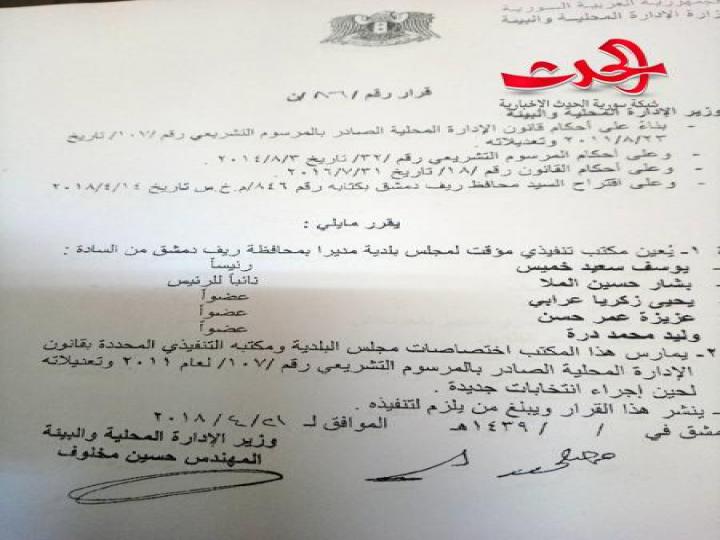 الجمهورية العربية السورية
وزارة الإدارة المحلية والبيئة
الحدث
شبكة سورية الحدث الإخبارية
قرار رقم /٨٦٠/ن
وزير الإدارة المحلية والبيئة
- بناءً على أحكام قانون الإدارة المحلية الصادر بالمرسوم التشريعي رقم /١٠٧/ تاريخ
٢٠١١/٨/٢٣ وتعديلاته .
- وعلى أحكام المرسوم التشريعي رقم /٣٢/ تاريخ ٢٠١٤/٨/٣ .
- وعلى أحكام القانون رقم /١٨/ تاريخ ٢٠١٦/٧/٣١ .
- وعلى اقتراح السيد محافظ ريف دمشق بكتابه رقم ٨٤٦/م.خ.س تاريخ ٢٠١٨/٤/١٤
يقرر مايلي :
١- يُعين مكتب تنفيذي مؤقت لمجلس بلدية مديرا بمحافظة ريف دمشق من السادة :
- يوسف سعيد خميس رئيساً
- بشار حسين الملا نائباً للرئيس
يحيى زكريا عرابي عضواً
عزيزة عمر حسن عضواً
وليد محمد درة عضواً
٢- يمارس هذا المكتب اختصاصات مجلس البلدية ومكتبه التنفيذي المحددة بقانون
الإدارة المحلية الصادر بالمرسوم التشريعي رقم /١٠٧/ لعام ٢٠١١ وتعديلاته
لحين إجراء انتخابات جديدة .
- ينشر هذا القرار ويبلغ من يلزم لتنفيذه .
دمشق في / / ١٤٣٩هـ الموافق لـ ٢٠١٨/٤/٢٦
وزير الإدارة المحلية والبيئة
المهندس حسين مخلوف